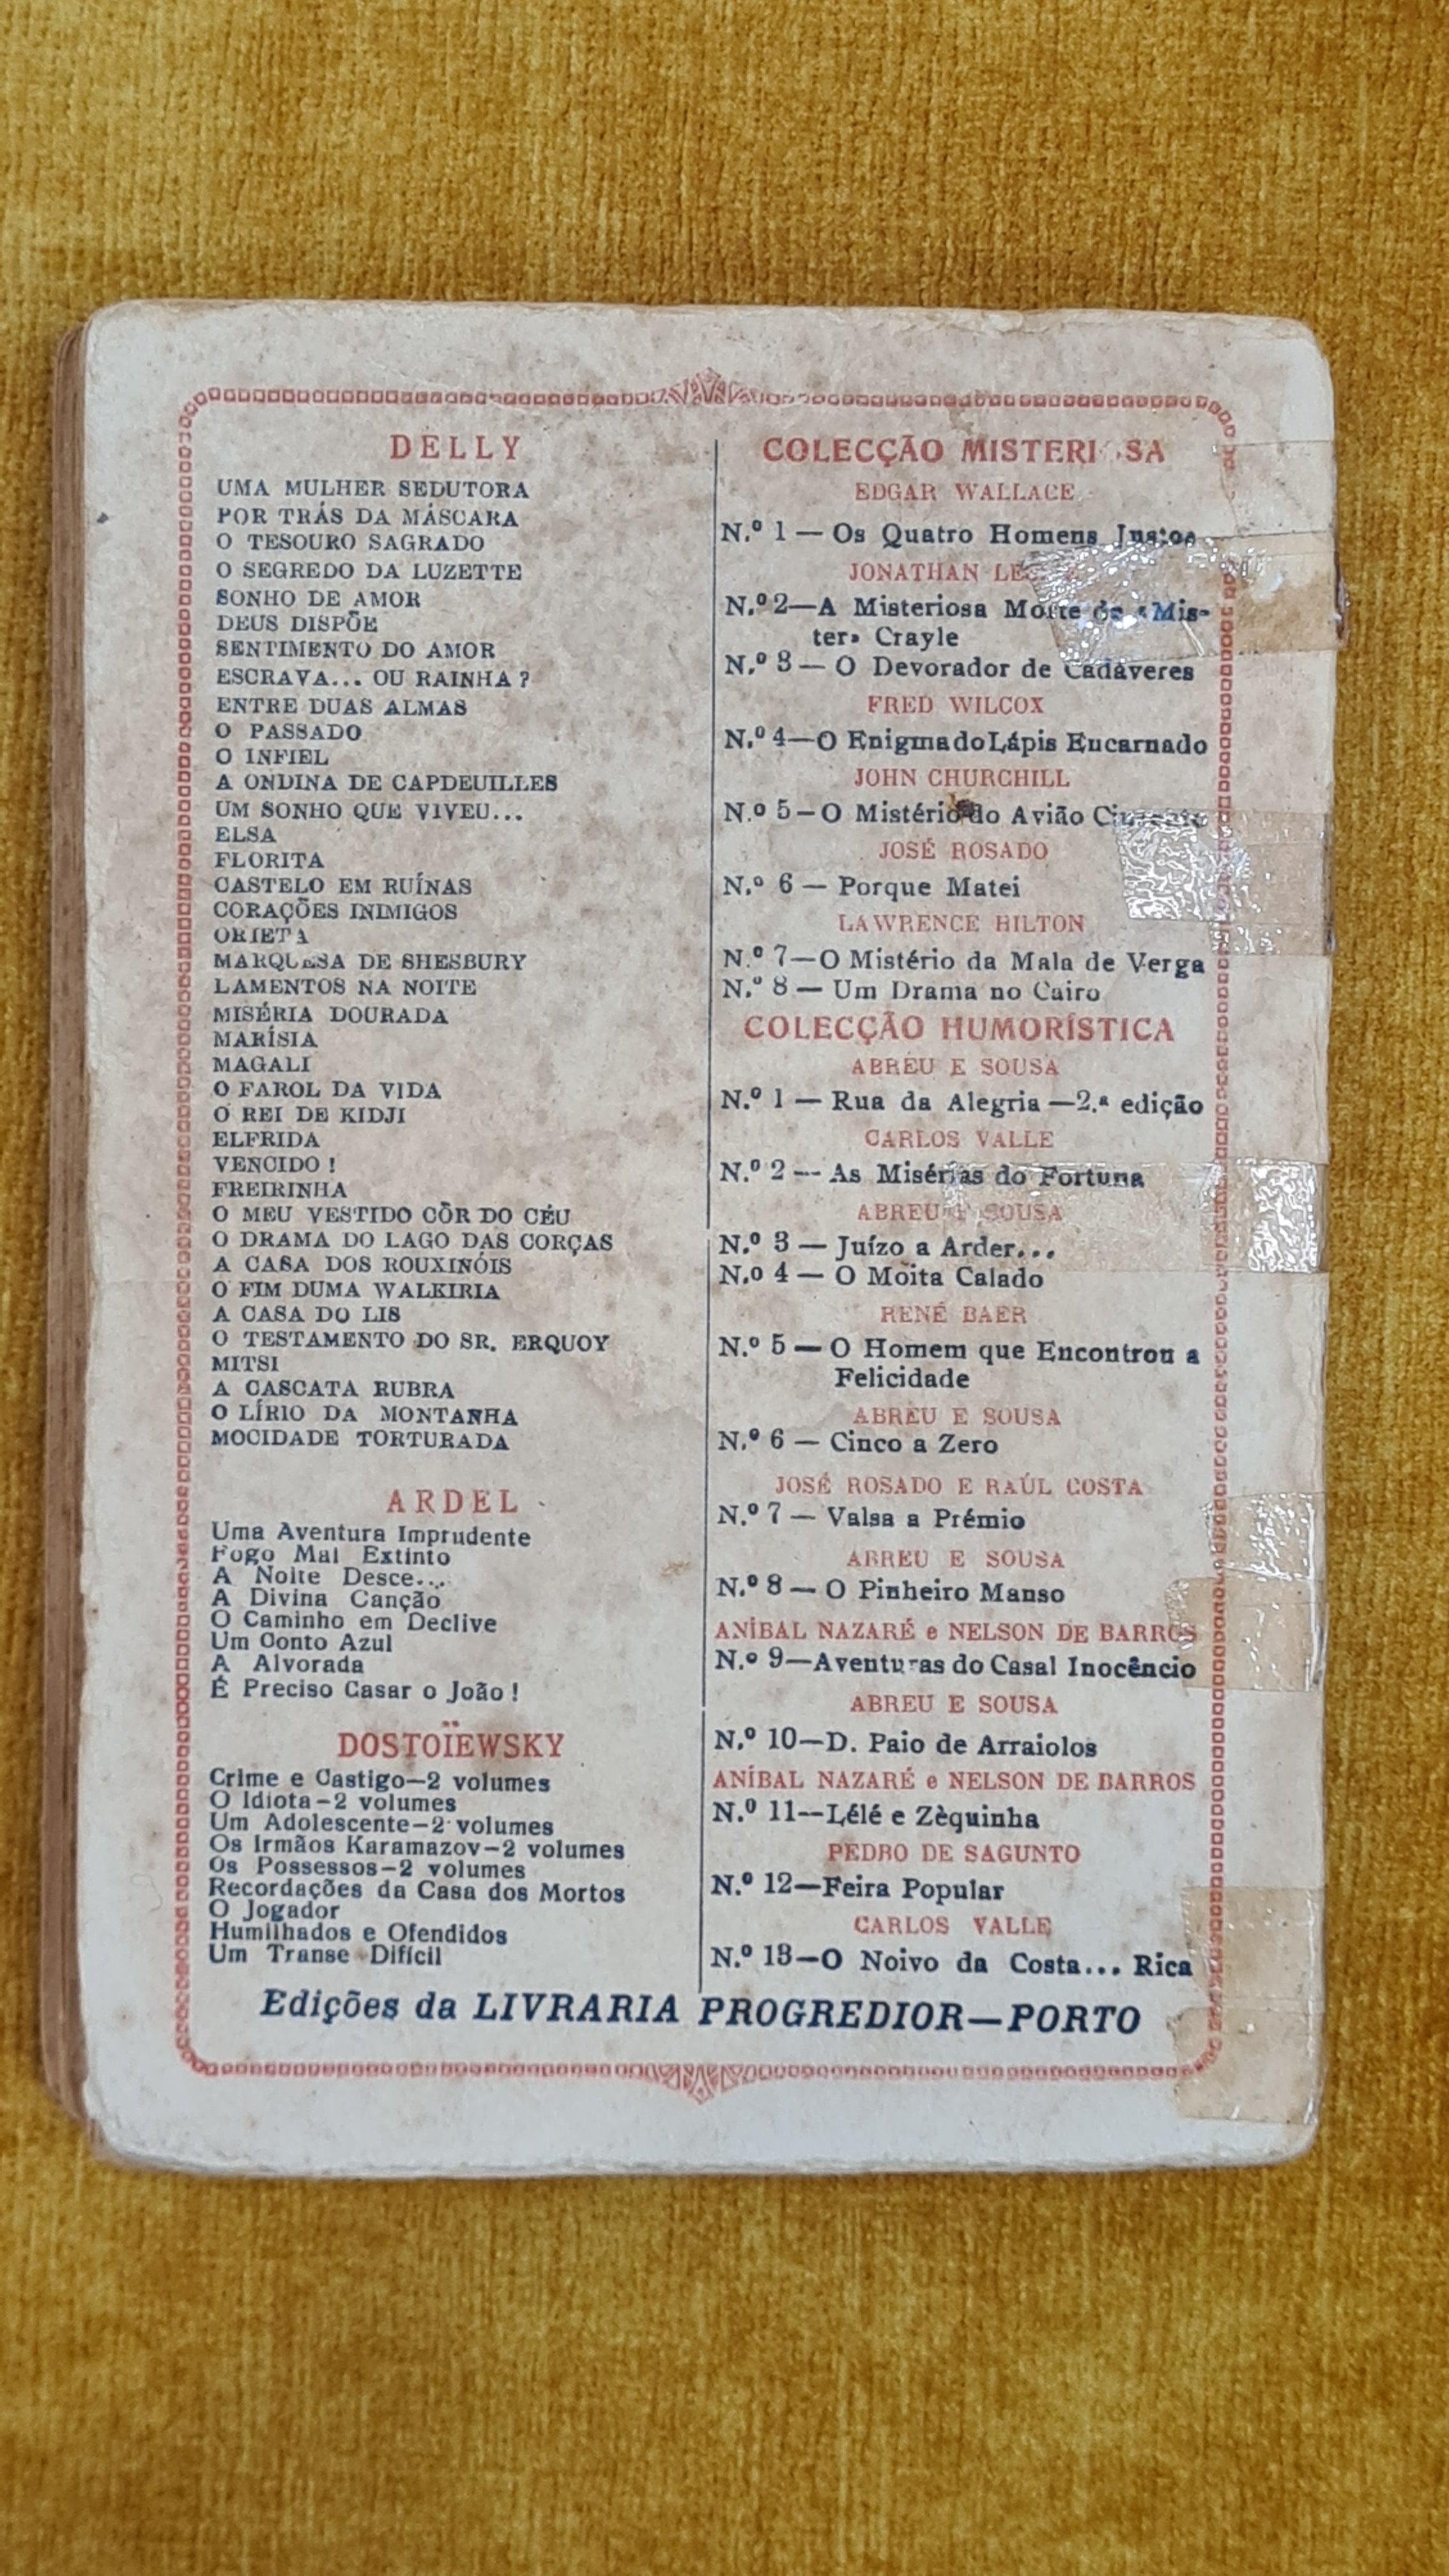 DELLY
UMA MULHER SEDUTORA
POR TRÁS DA MÁSCARA
O TESOURO SAGRADO
O SEGREDO DA LUZETTE
SONHO DE AMOR
DEUS DISPÕE
SENTIMENTO DO AMOR
ESCRAVA... OU RAINHA?
ENTRE DUAS ALMAS
O PASSADO
O INFIEL
A ONDINA DE CAPDEUILLES
UM SONHO QUE VIVEU...
ELSA
FLORITA
CASTELO EM RUÍNAS
CORAÇÕES INIMIGOS
ORIETA
MARQUESA DE SHESBURY
LAMENTOS NA NOITE
MISÉRIA DOURADA
MARÍSIA
MAGALI
O FAROL DA VIDA
O REI DE KIDJI
ELFRIDA
VENCIDO!
FREIRINHA
O MEU VESTIDO CÔR DO CÉU
O DRAMA DO LAGO DAS CORÇAS
A CASA DOS ROUXINÓIS
O FIM DUMA WALKIRIA
A CASA DO LIS
O TESTAMENTO DO SR. ERQUOY
MITSI
A CASCATA RUBRA
O LÍRIO DA MONTANHA
MOCIDADE TORTURADA
ARDEL
Uma Aventura Imprudente
Fogo Mal Extinto
A Noite Desce...
A Divina Canção
O Caminho em Declive
Um Conto Azul
A Alvorada
É Preciso Casar o João!
DOSTOÏEWSKY
Crime e Castigo—2 volumes
O Idiota—2 volumes
Um Adolescente—2 volumes
Os Irmãos Karamazov—2 volumes
Os Possessos—2 volumes
Recordações da Casa dos Mortos
O Jogador
Humilhados e Ofendidos
Um Transe Difícil
COLECÇÃO MISTERIOSA
EDGAR WALLACE
N.º 1 — Os Quatro Homens Justos
JONATHAN
N.º 2—A Misteriosa Morte de «Mis-
ter» Crayle
N.º 3 — O Devorador de Cadáveres
FRED WILCOX
N.º 4—O Enigma do Lápis Encarnado
JOHN CHURCHILL
N.º 5—O Mistério do Avião
JOSÉ ROSADO
N.º 6 — Porque Matei
LAWRENCE HILTON
N.º 7—O Mistério da Mala de Verga
N.º 8 — Um Drama no Cairo
COLECÇÃO HUMORÍSTICA
ABREU E SOUSA
N.º 1 — Rua da Alegria—2.ª edição
CARLOS VALLE
N.º 2 — As Misérias do Fortuna
ABREU E SOUSA
N.º 3 — Juízo a Arder...
N.º 4 — O Moita Calado
RENÉ BAER
N.º 5 — O Homem que Encontrou a
Felicidade
ABREU E SOUSA
N.º 6 — Cinco a Zero
JOSÉ ROSADO E RAÚL COSTA
N.º 7 — Valsa a Prémio
ABREU E SOUSA
N.º 8 — O Pinheiro Manso
ANÍBAL NAZARÉ e NELSON DE BARROS
N.º 9—Aventuras do Casal Inocêncio
ABREU E SOUSA
N.º 10—D. Paio de Arraiolos
ANÍBAL NAZARÉ e NELSON DE BARROS
N.º 11—Lélé e Zèquinha
PEDRO DE SAGUNTO
N.º 12—Feira Popular
CARLOS VALLE
N.º 13—O Noivo da Costa... Rica
Edições da LIVRARIA PROGREDIOR—PORTO